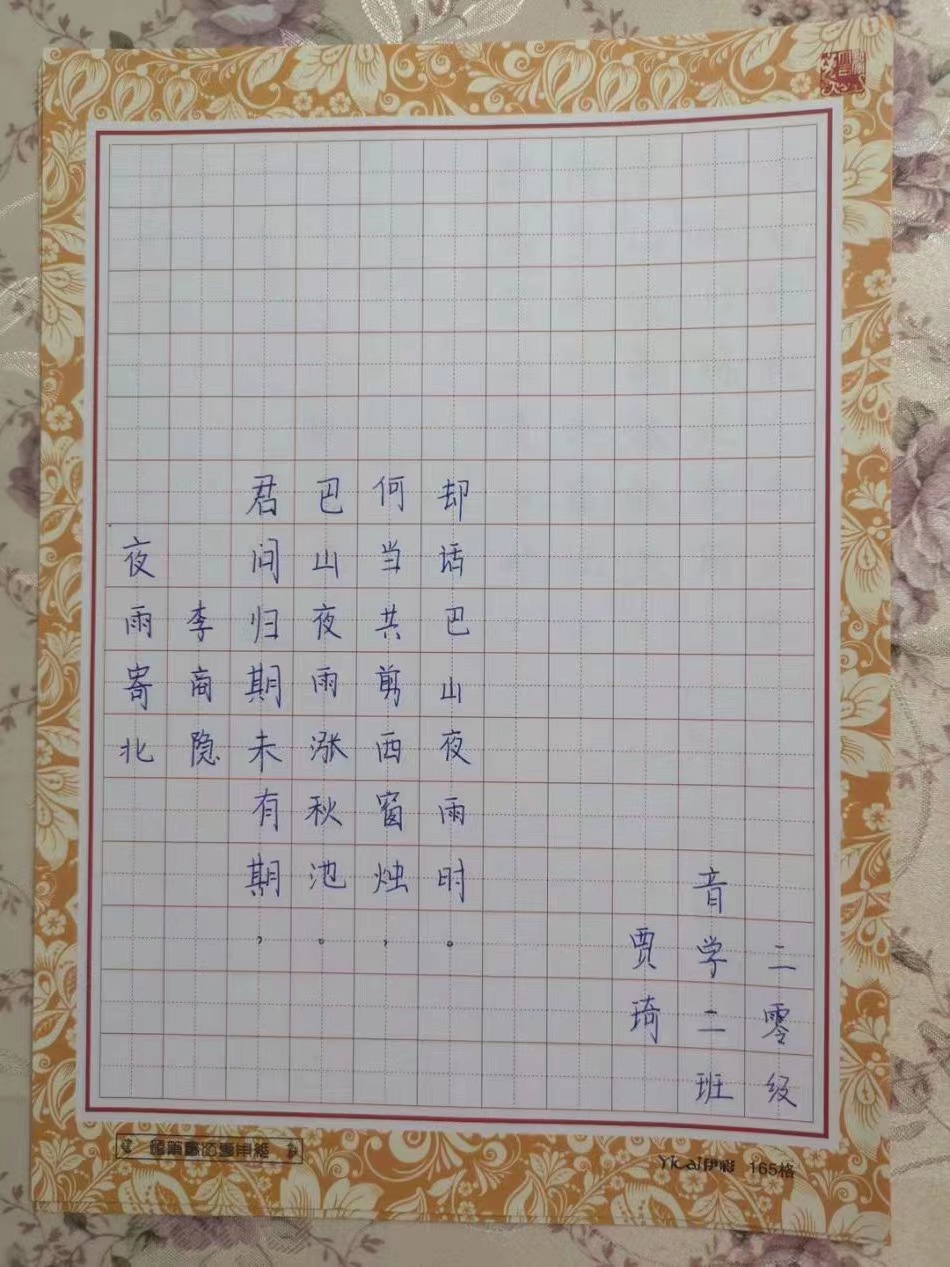 夜雨寄北
李商隐
君问归期未有期，
巴山夜雨涨秋池。
何当共剪西窗烛，
却话巴山夜雨时。
贾琦
音学二班
二零级
硬笔书法专用纸
Yicai伊彩 165格